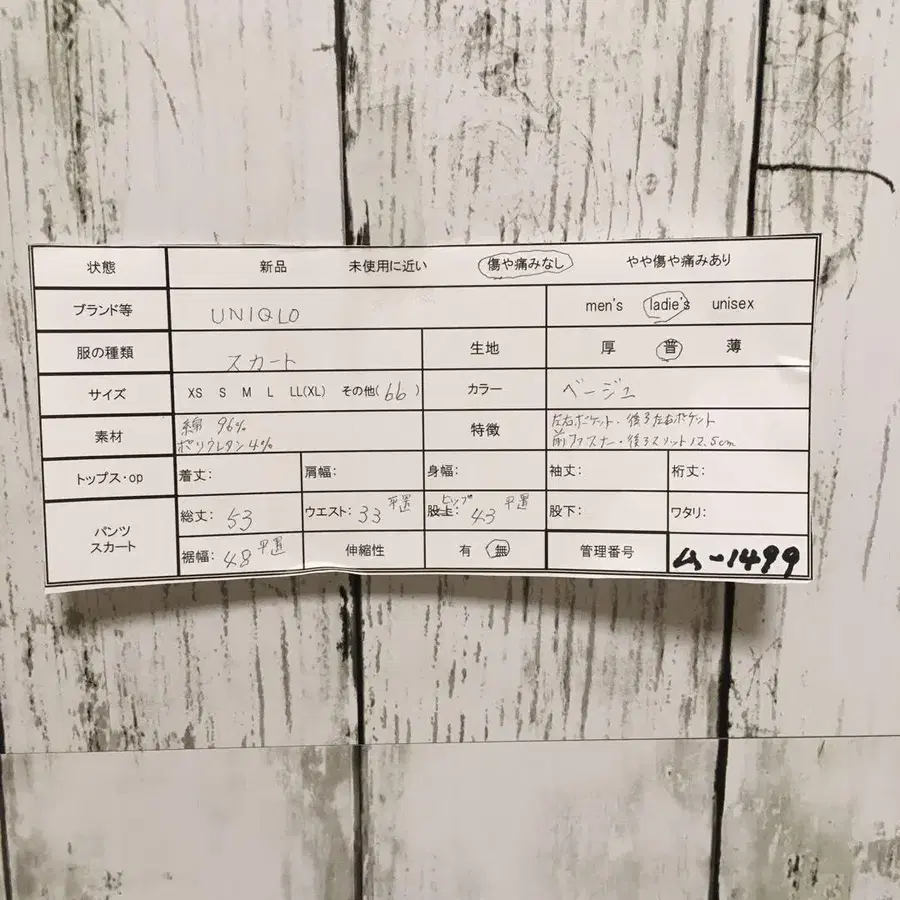 状態 新品 未使用に近い 傷や痛みなし やや傷や痛みあり
ブランド等 UNIQLO men's ladie's unisex
服の種類 スカート 生地 厚 普 薄
サイズ XS S M L LL(XL) その他(66) カラー ベージュ
素材 綿 96% 特徴 左右ポケット・後ろ左右ポケット
ポリウレタン4% 前ファスナー・後ろスリット12.5cm
トップス・op 着丈: 肩幅: 身幅: 袖丈: 裄丈:
パンツ スカート 総丈: 53 ウエスト: 33 平置 股上: ヒップ 43 平置 股下: ワタリ:
裾幅: 48 平置 伸縮性 有 無 管理番号 ム-1499